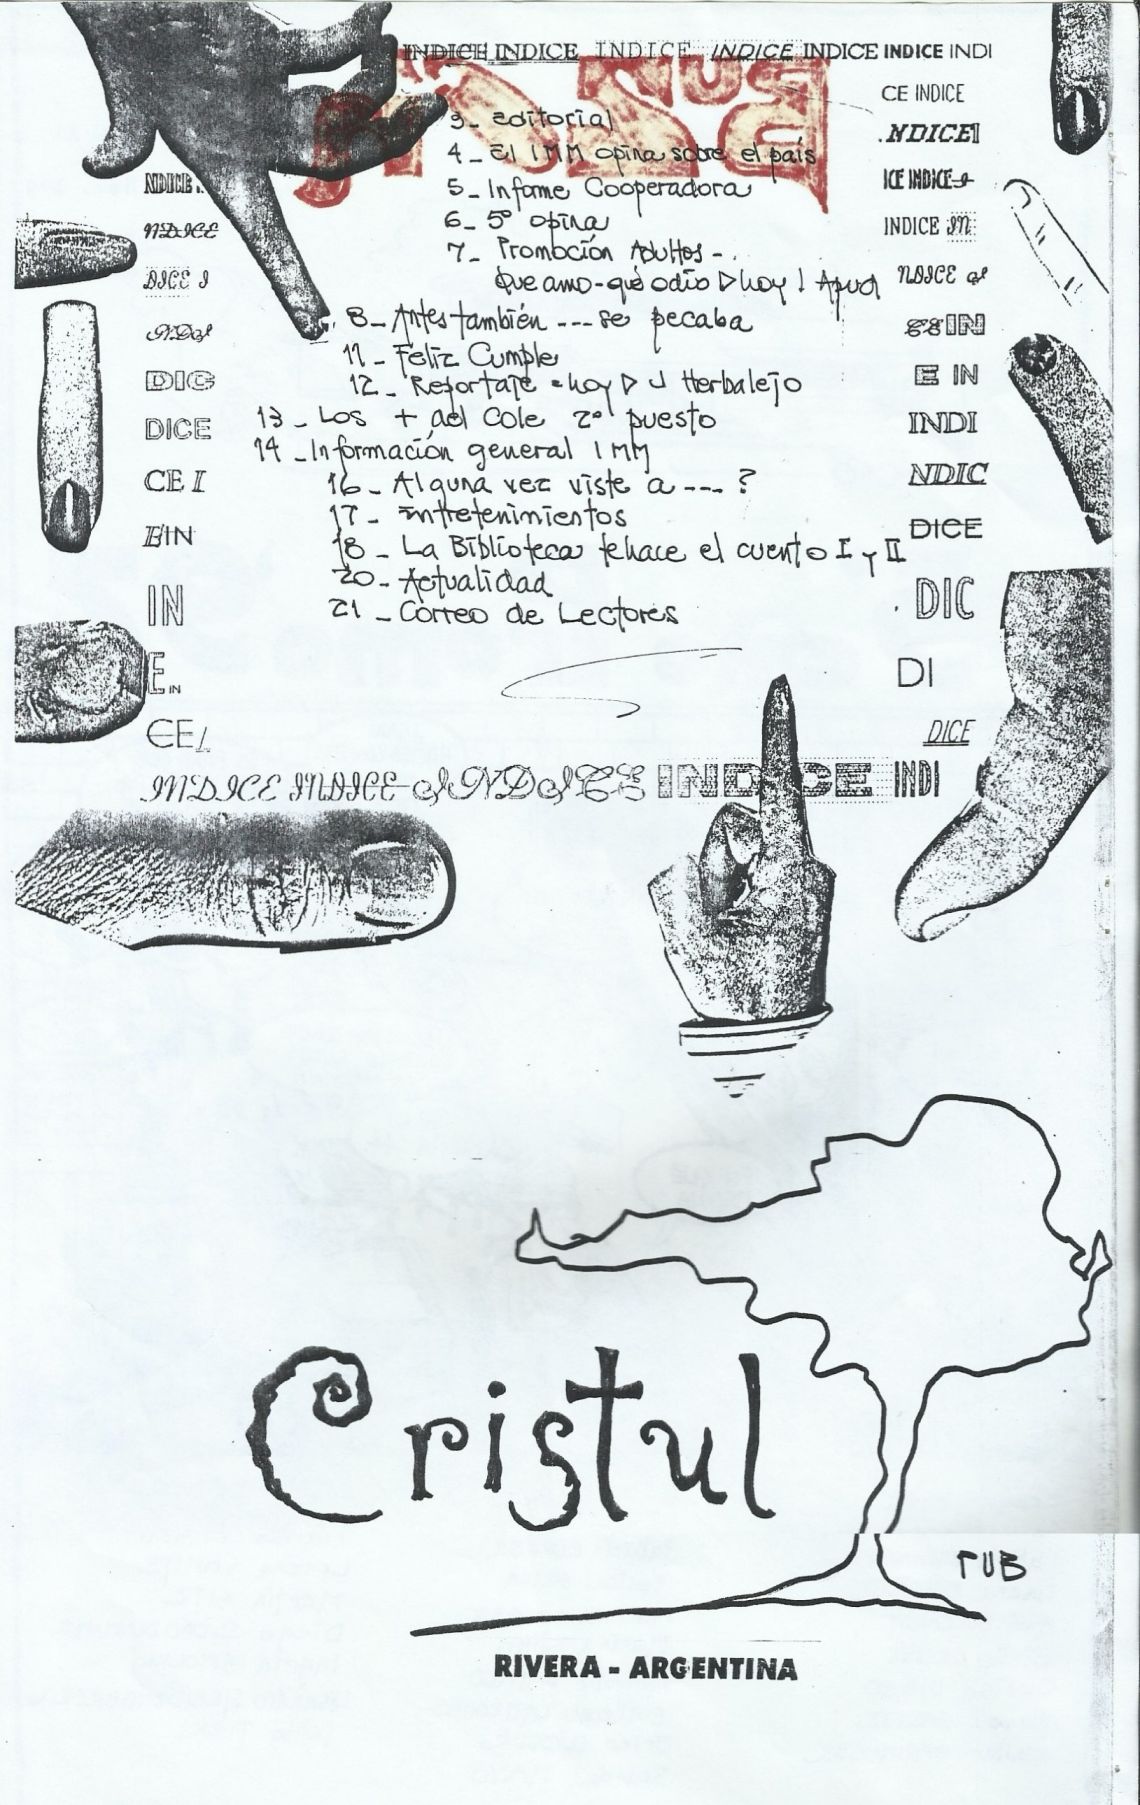 INDICE INDICE INDICE INDICE INDICE INDICE INDI
CE INDICE
NDICE
ICE INDICE
INDICE IN
NDICE
IN
E IN
INDI
NDIC
DICE
DIC
DI
DICE
3_ Editorial
4_ El IMM opina sobre el país
5_ Informe Cooperadora
6_ 5º opina
7_ Promoción Adultos -
Que amo - qué odio ▷ hoy !
8_ Antes también --- se pecaba
11_ Feliz Cumple
12_ Reportaje - hoy ▷ J Herbalejo
13_ Los + del Cole 2º puesto
14_ Información general IMM
16_ Alguna vez viste a --- ?
17_ Entretenimientos
18_ La Biblioteca te hace el cuento I y II
20_ Actualidad
21_ Correo de Lectores
NDICE
DICE I
DIC
DICE
CE I
E IN
IN
E IN
CE
INDICE INDICE INDICE INDICE INDI
Cristul
PUB
RIVERA - ARGENTINA